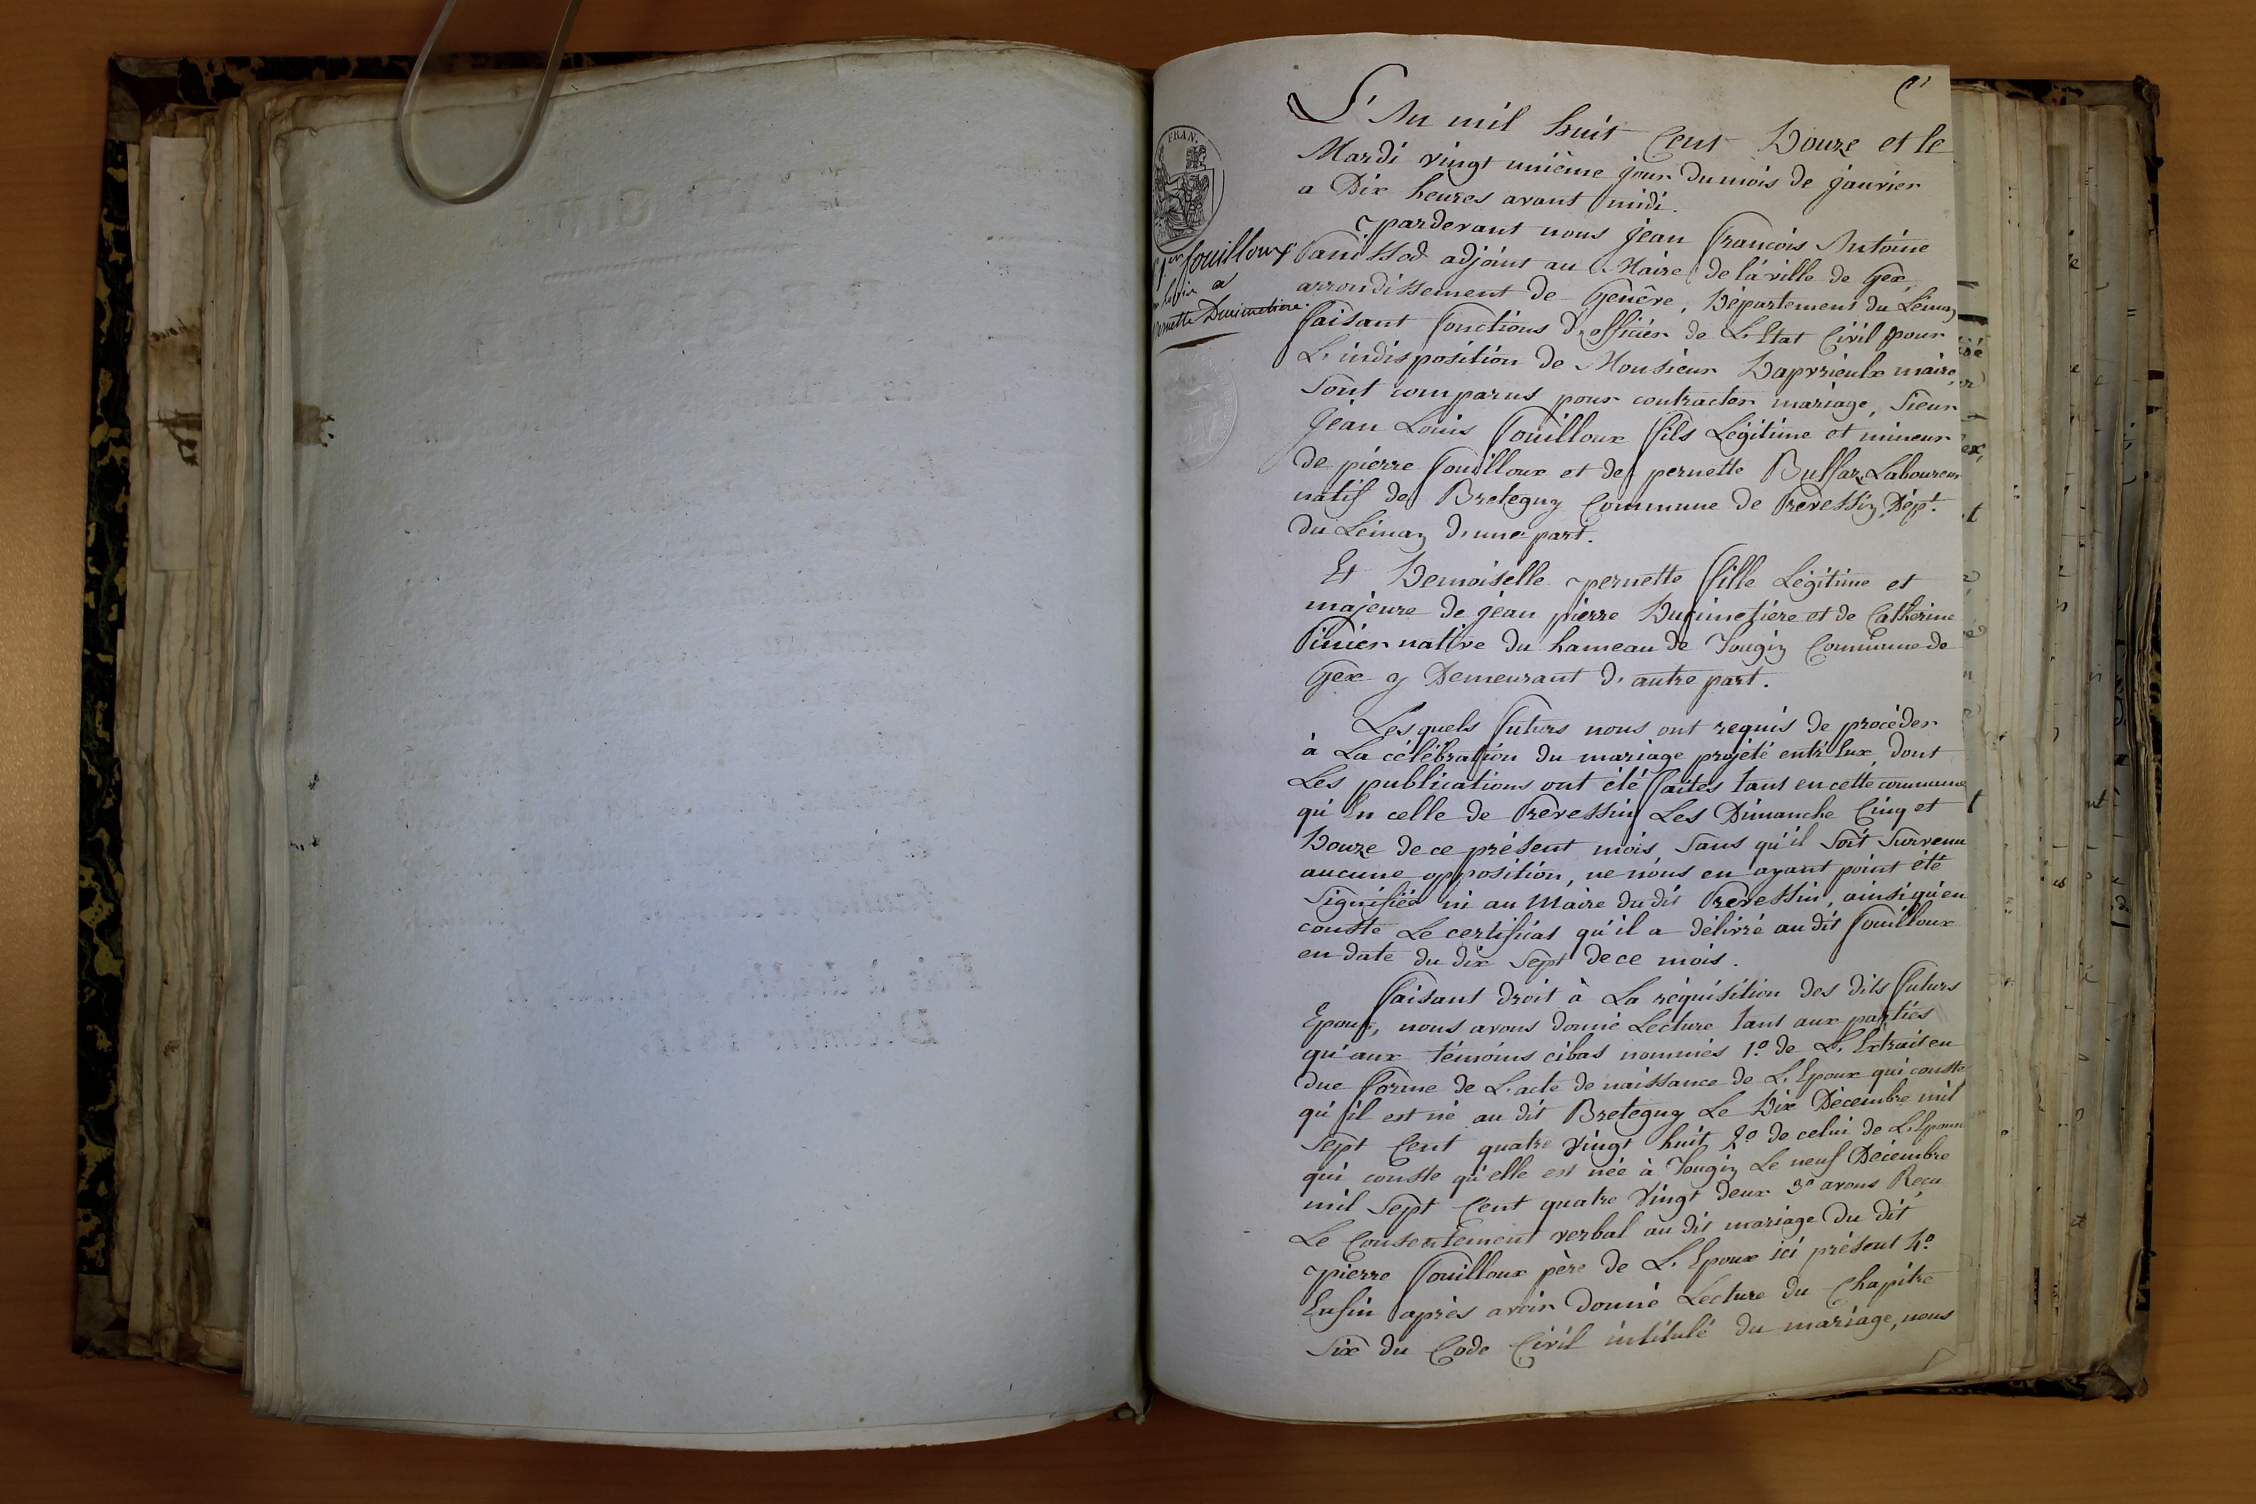 FRAN.
fouilloux
Louis a
Pernette Ducimetiere.
L'An mil huit Cent Douze et le
Mardi vingt unième jour du mois de janvier
a Dix heures avant midi.
pardevant nous jean françois Antoine
Panissod adjoint au Maire de la ville de Gex,
arrondissement de Genêve, Département du Léman
faisant fonctions d'officier de L'Etat Civil pour
L'indisposition de Monsieur maire,
Sont comparus pour contracter mariage, Sieur
Jean Louis fouilloux fils Légitime et mineur
de pierre fouilloux et de pernette Laboureur
natif de Bretegny Commune de Prevessin, Dépt.
du Léman d'une part.
Et Demoiselle pernette fille Légitime et
majeure de jean pierre Ducimetiere et de Catherine
native du hameau de Tougin Commune de
Gex y Demeurant d'autre part.
Lesquels futurs nous ont requis de procéder
à La célébration du mariage projété entr'Eux, dont
Les publications ont été faites tant en cette commune
qu'En celle de Prevessin Les Dimanche Cinq et
Douze de ce présent mois, Sans qu'il Soit Survenu
aucune opposition, ne nous en ayant point été
Signifiée ni au Maire du dit Prevessin, ainsi qu'en
conste Le certificat qu'il a délivré au dit fouilloux
en date du dix Sept de ce mois.
faisant droit à La réquisition des dits futurs
Epoux, nous avons donné Lecture tant aux parties
qu'aux témoins cibas nommés 1.º de L'Extrait en
due forme de L'acte de naissance de L'Epoux qui conste
qu'il est né au dit Bretegny Le Dix Décembre mil
Sept Cent quatre Vingt huit 2.º de celui de L'Epouse
qui conste qu'elle est née à Tougin Le neuf Décembre
mil Sept Cent quatre Vingt deux 3º avons Reçu
Le Consentement verbal au dit mariage du dit
pierre fouilloux père de L'Epoux ici présent 4.º
Enfin après avoir donné Lecture du Chapitre
Six du Code Civil intitulé du mariage, nous